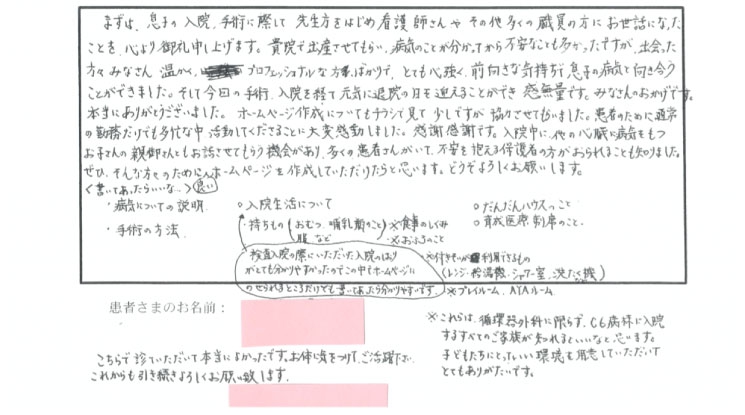 まずは、息子の入院、手術に際して先生方をはじめ看護師さんやその他多くの職員の方にお世話になった
ことを、心より御礼申し上げます。貴院で出産させてもらい、病気のことが分かってから不安なことも多かったですが、出会った
方々みなさん温かく、プロフェッショナルな方ばかりで、とても心強く、前向きな気持ちで息子の病気と向き合う
ことができました。そして今回の手術、入院を経て元気に退院の日を迎えることができ感無量です。みなさんのおかげです。
本当にありがとうございました。ホームページ作成についてもチラシで見て少しですが協力させてもらいました。患者のために通常
の勤務だけでも多忙な中活動してくださることに大変感動しました。感謝感謝です。入院中に、他の心臓に病気をもつ
お子さんの親御さんともお話させてもらう機会があり、多くの患者さんがいて、不安を抱える保護者の方がおられることも知りました。
ぜひ、そんな方々のためにもホームページを作成していただけたらと思います。どうぞよろしくお願いします。
<書いてあったらいいな…> 良い
・病気についての説明
・手術の方法
○入院生活について
・持ちもの(おむつ、哺乳瓶のこと 服 など)
※食事のしくみ
※おふろのこと
○だんだんハウスのこと
○育成医療制度のこと。
検査入院の際にいただいた入院のしおり
がとても分かりやすかったのでこの中もホームページに
のせられるところだけでも書いてあったら分かりやすいです
※付きそいが利用できるもの
(レンジ・給湯器・シャワー室、洗たく機)
※プレイルーム、AYAルーム
患者さまのお名前：
※これらは、循環器外科に限らず、C6病棟に入院
するすべてのご家族が知れるといいなと思います。
子どもたちにとっていい環境を用意していただいて
とてもありがたいです。
こちらで診ていただいて本当によかったです。お体に気をつけて、ご活躍下さい。
これからも引き続きよろしくお願い致します。